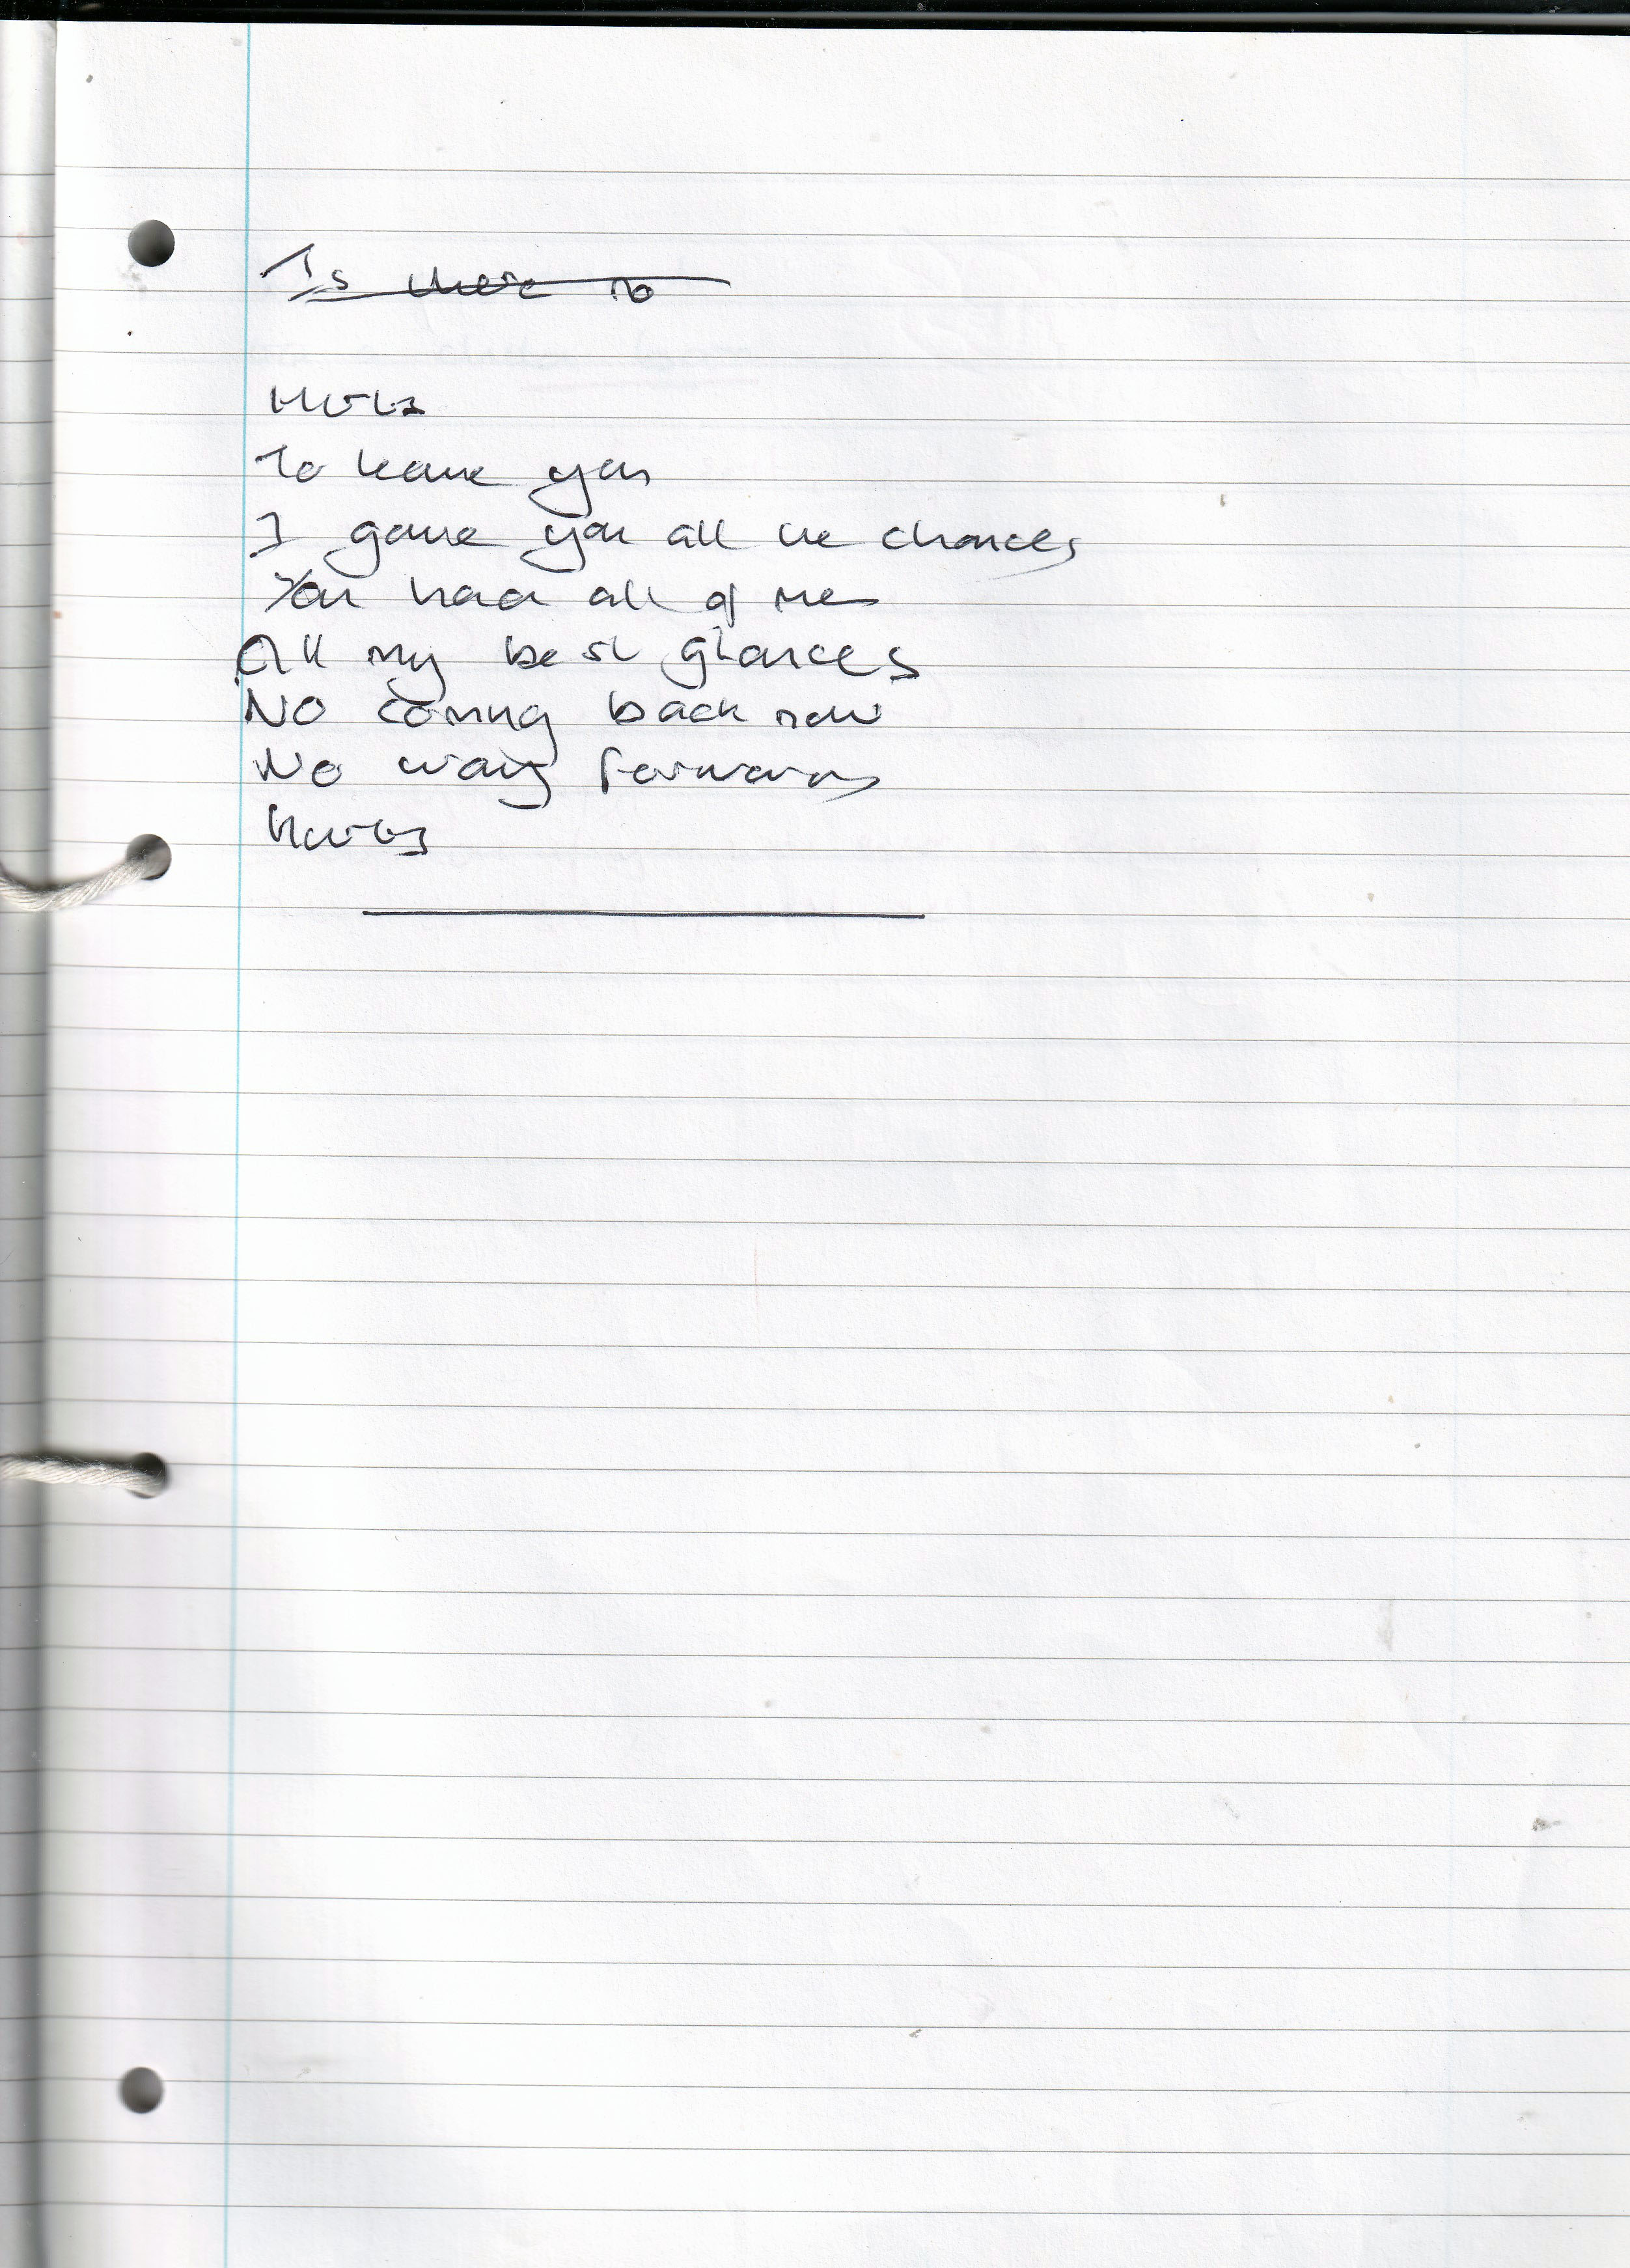 Is there no
Hurts
To leave you
I gave you all the chances
You had all of me
All my best glances
No coming back now
No way forwards
Hurts